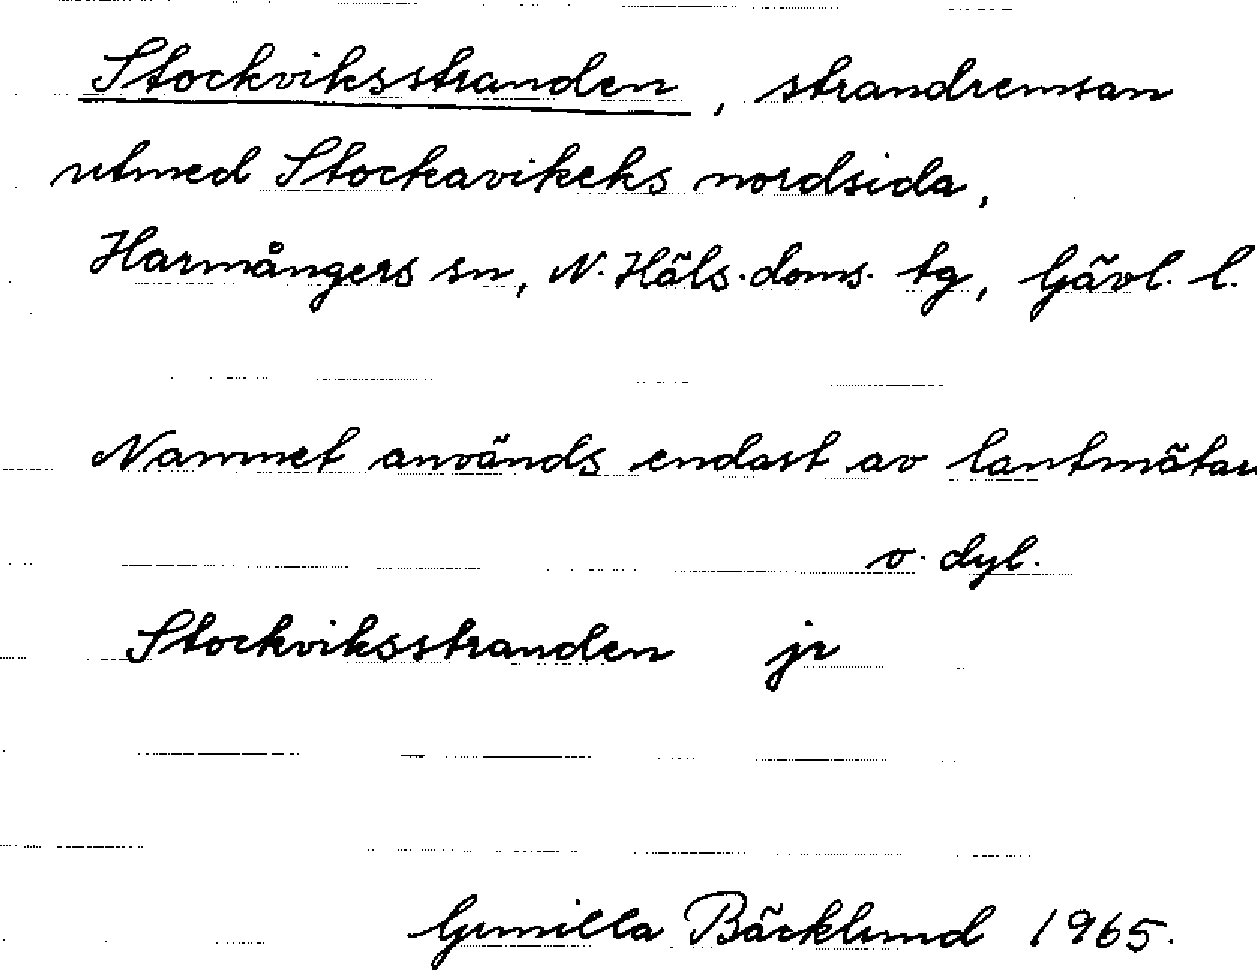 Stockviksstranden, strandremsan
utmed Stockavikeks nordsida,
Harmångers sn, N. Häls.doms. tg, Gävl. l.
Namnet används endast av lantmätar
o. dyl.
Stockviksstranden jr
Gunilla Bäcklund 1965.